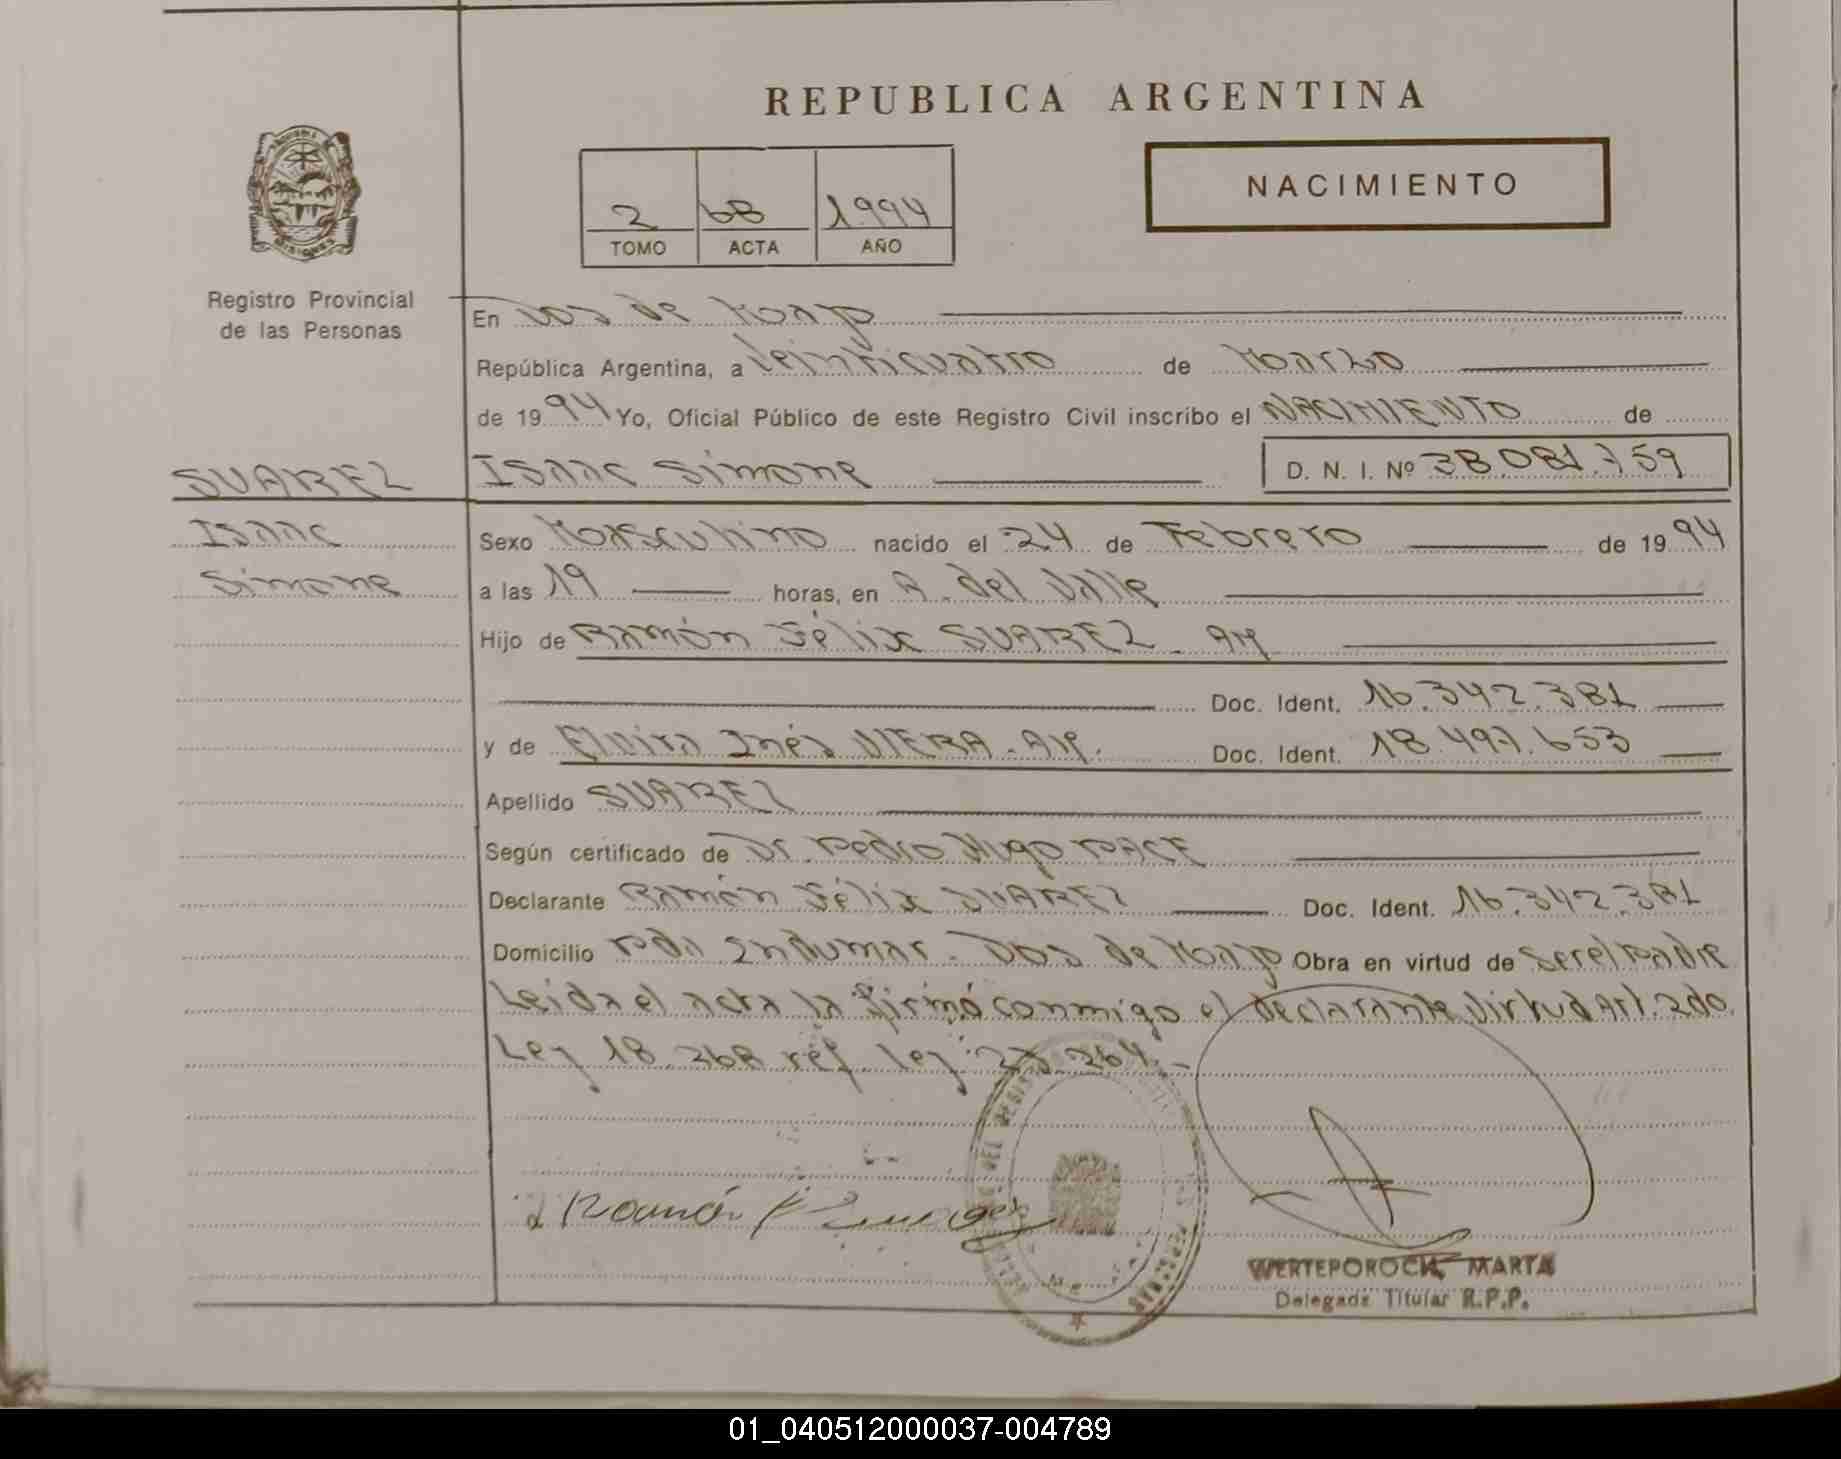 REPUBLICA ARGENTINA
NACIMIENTO
2 68 1994
TOMO ACTA AÑO
MISIONES
Registro Provincial
de las Personas
En Dos de Mayo
República Argentina, a Veinticuatro de Marzo
de 1994 Yo, Oficial Público de este Registro Civil inscribo el NACIMIENTO de
SUAREZ
Isaac Simone D. N. I. Nº 38.081.759
Isaac
Simone
Sexo Masculino nacido el 24 de Febrero de 1994
a las 19 horas, en A. del Valle
Hijo de Ramón Félix SUAREZ - Ar
Doc. Ident. 16.342.381
y de Elvira Inés VIERA - Ar. Doc. Ident. 18.497.653
Apellido SUAREZ
Según certificado de Dr. Pedro Hugo PACE
Declarante Ramón Félix SUAREZ Doc. Ident. 16.342.381
Domicilio Pda Indumar - Dos de Mayo Obra en virtud de ser el Padre
Leida el acta la firmó conmigo el declarante Virtud Art. 2do.
Ley 18.
WERTEPOROCH, MARTA
Delegada Titular R.P.P.
01_040512000037-004789